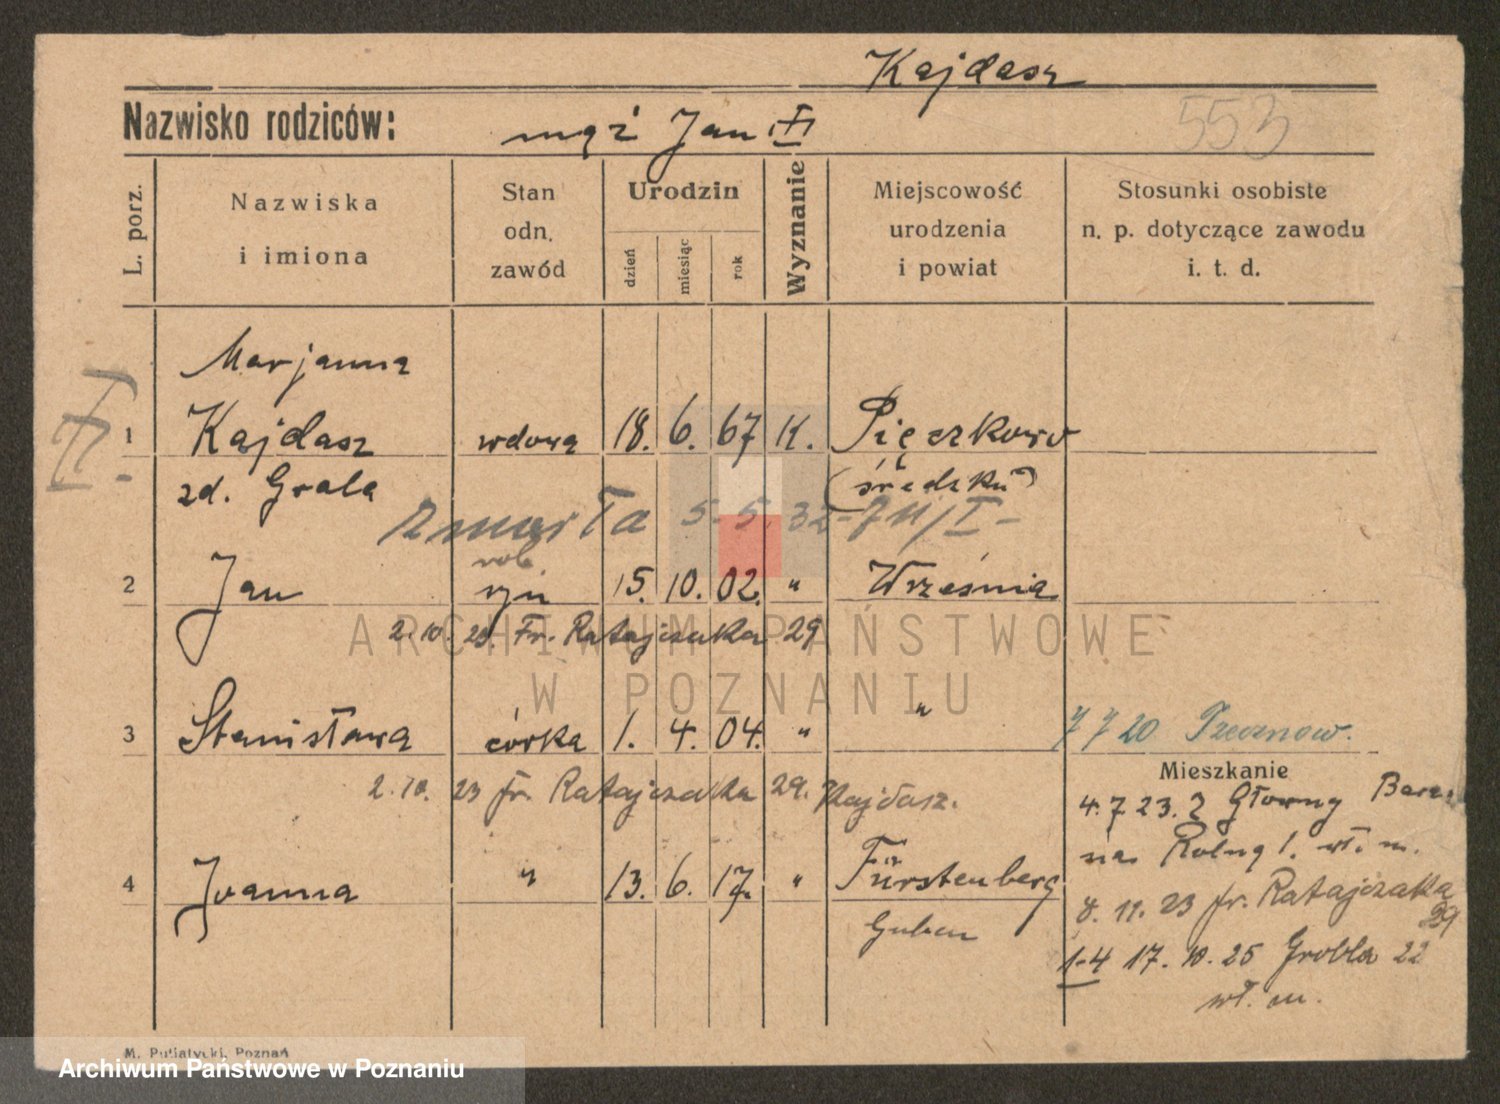 Kajdasz
Nazwisko rodziców: mąż Jan
553
L. porz. Nazwiska i imiona Stan odn. zawód Urodzin dzień miesiąc rok Wyznanie Miejscowość urodzenia i powiat Stosunki osobiste n. p. dotyczące zawodu i. t. d.
Marjanna
1 Kajdasz wdowa 18. 6. 67 K. Pięczkowo
zd. Grala (średzki)
zmarła 5. 5. 32
rob.
2 Jan syn 15. 10. 02. " Września
2. 10. 23. Fr. Ratajczaka 29
3 Stanisława córka 1. 4. 04. " " 7 7 20
2. 10. 23 fr. Ratajczaka 29. Kajdasz.
Mieszkanie
4. 7 23. Z Główny
Rolną 1. wł. m.
4 Joanna " 13. 6. 17. " Fürstenberg
8. 11. 23 fr. Ratajczaka 29
Guben
1-4 17. 10. 25 Grobla 22
wł. m.
M. Putiatycki, Poznań
ARCHIWUM PAŃSTWOWE
W POZNANIU
Archiwum Państwowe w Poznaniu